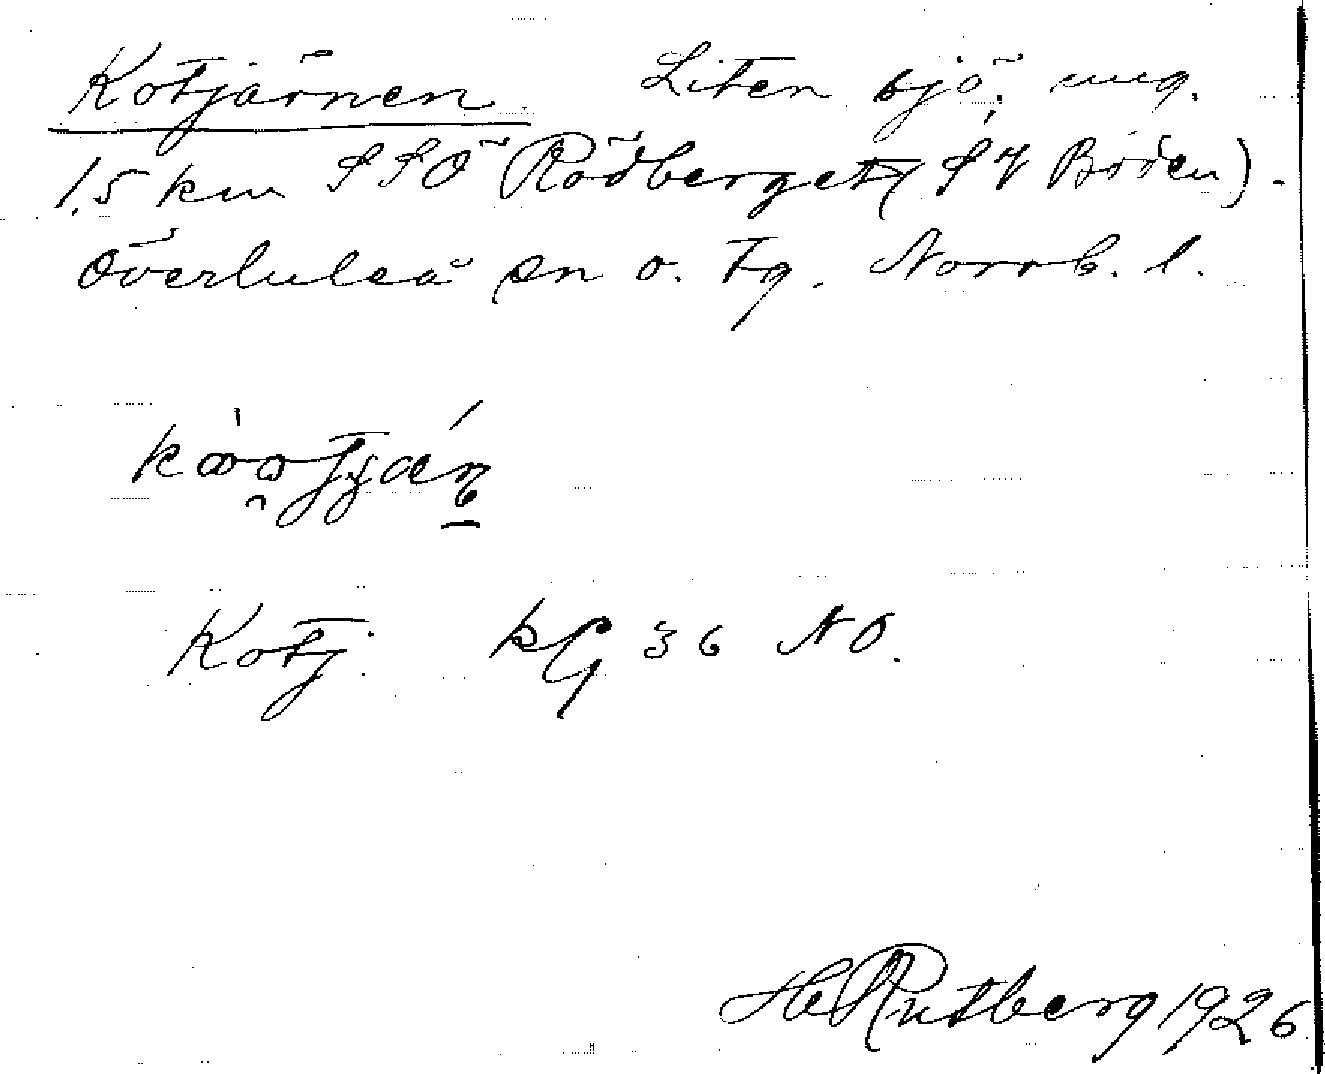 Kotjärnen Liten sjö, ung.
1,5 km SSÖ Rödberget (SV Boden).
Överluleå sn o. tg. Norrb. l.
Kotj. kG 36 NO.
H Rutberg 1926